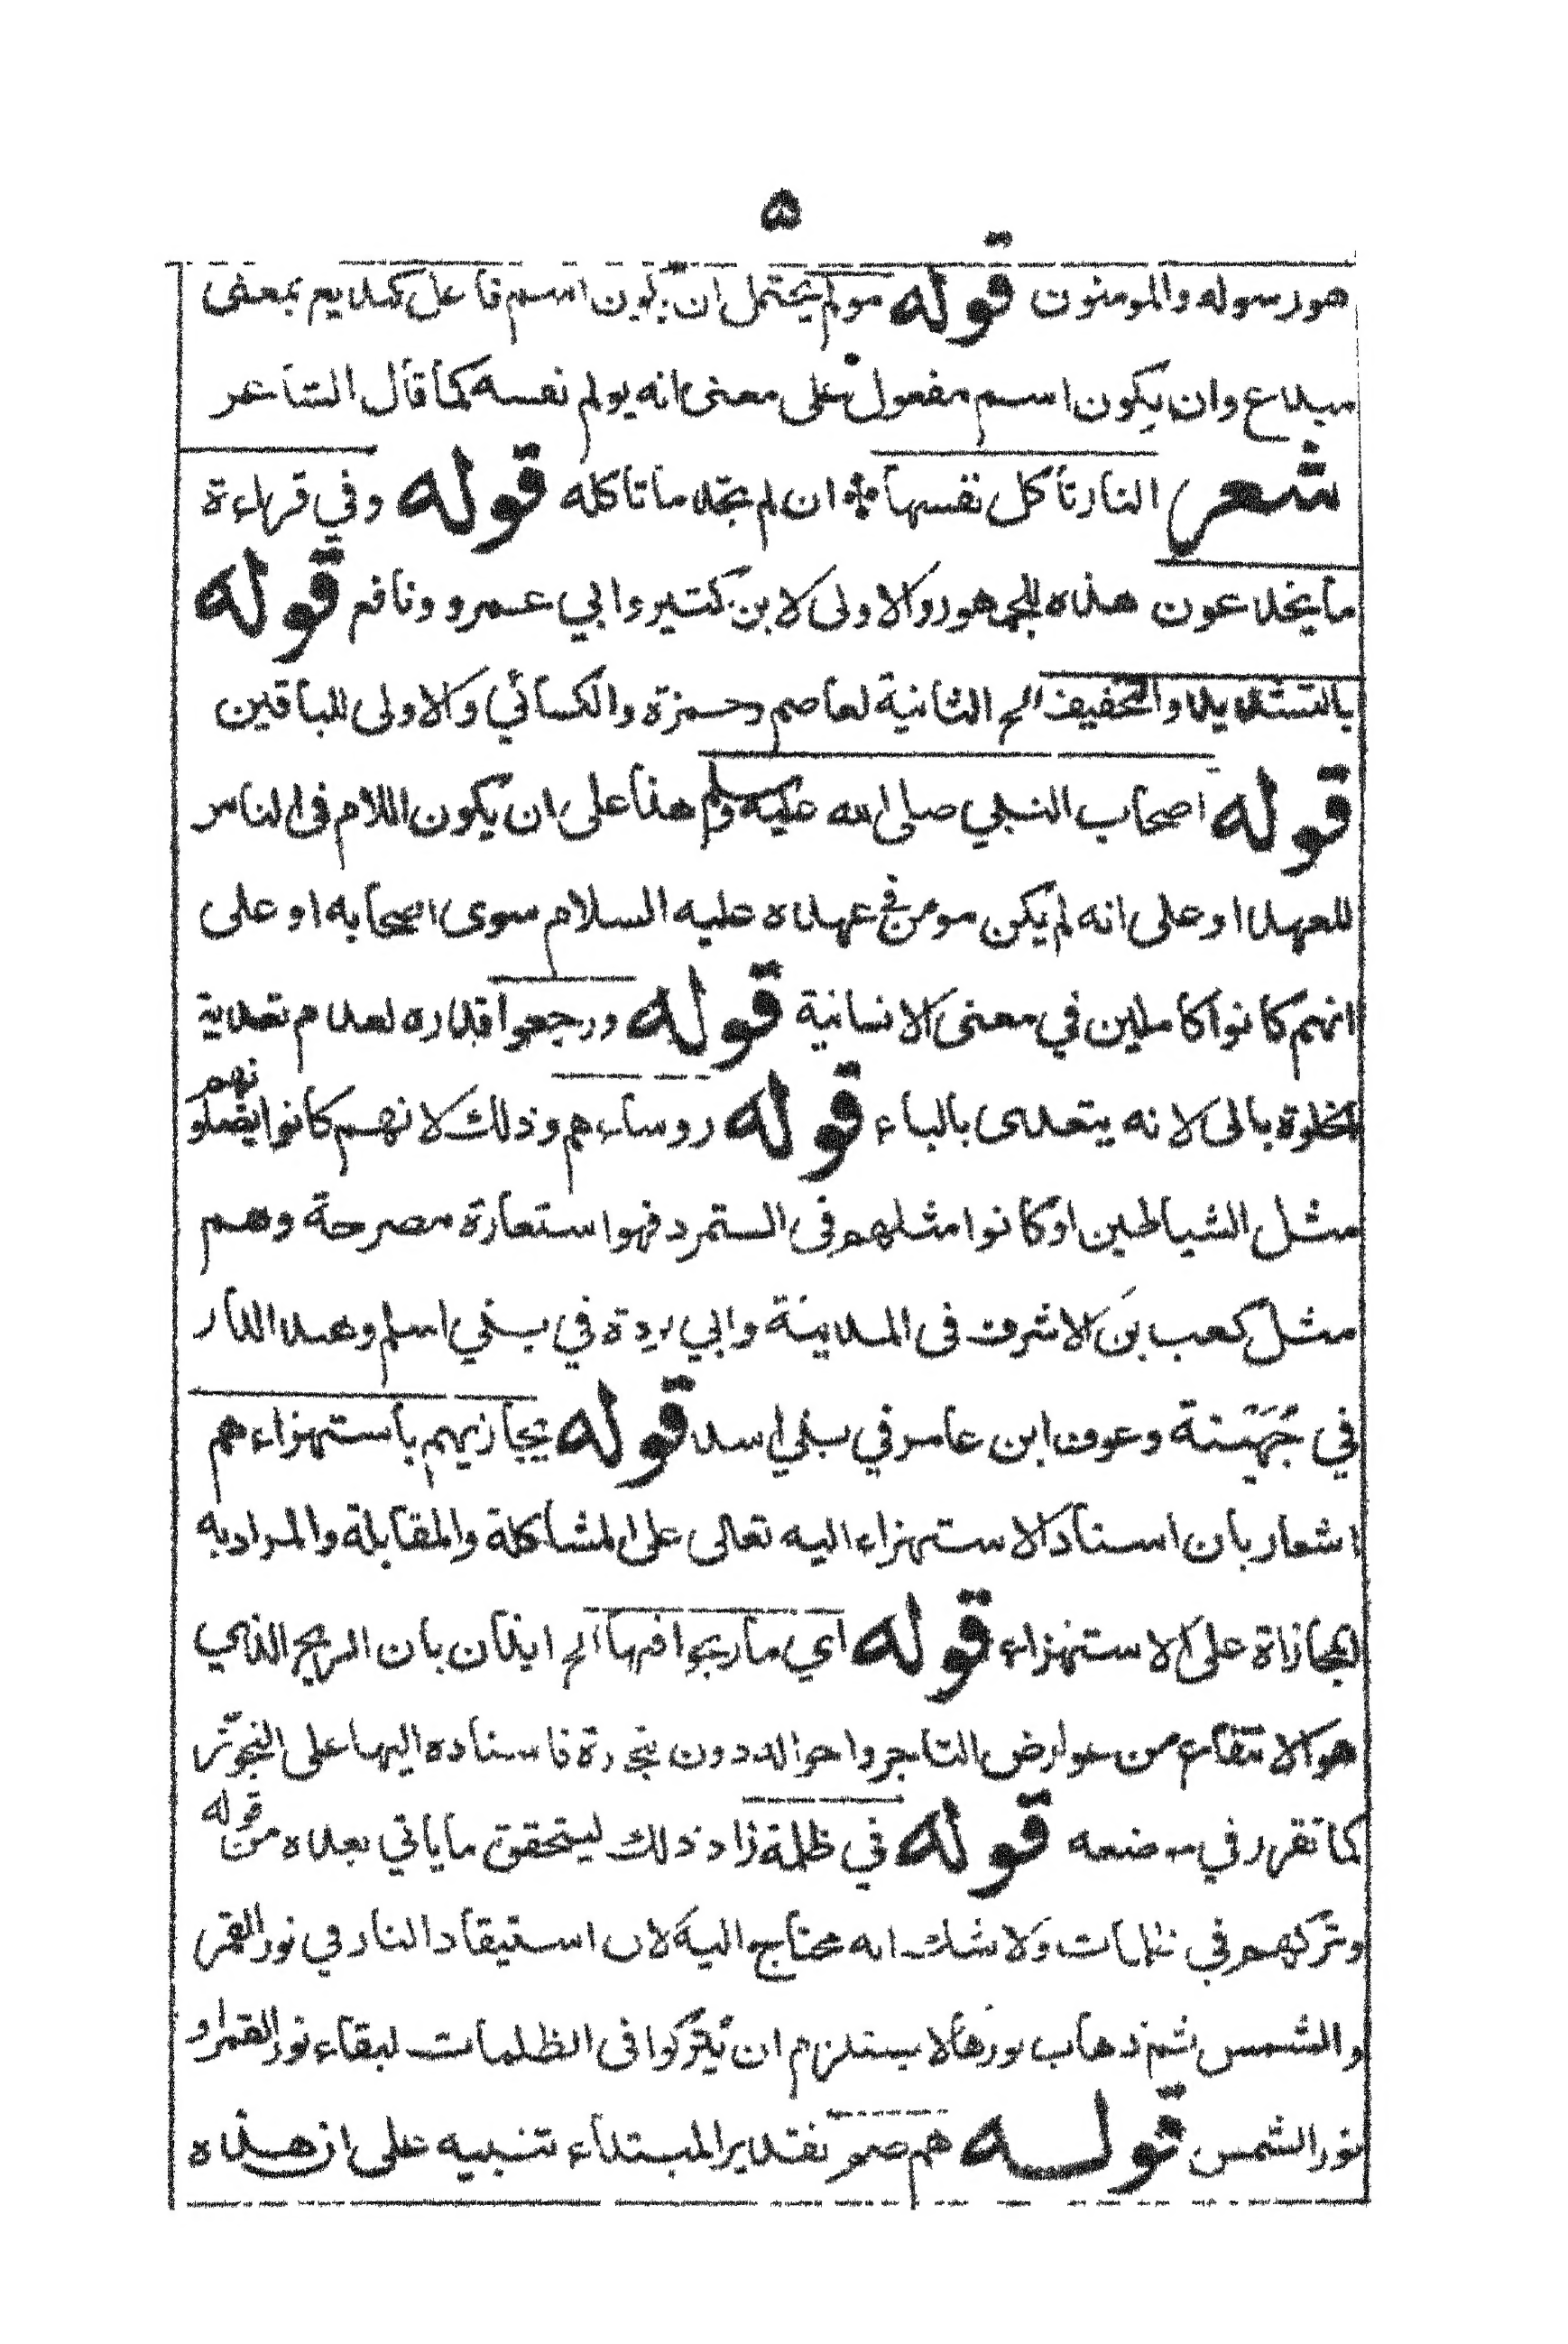 ۵
هو رسوله والمومنون قوله مولم يحتمل ان يكون اسم فاعل كبديع بمعنى
مبدع وان يكون اسم مفعول على معنى انه يولم نفسه كما قال الشاعر
شعر النار تأكل نفسها ان لم تجد ما تاكله قوله وفي قراءة
ما يخدعون هذه للجمهور والاولى لابن كثير وابي عمرو ونافع قوله
بالتشديد والتخفيف الخ الثانية لعاصم وحمزة والكسائي والاولى للباقين
قوله اصحاب النبي صلى الله عليه وسلم هذا على ان يكون اللام فى الناس
للعهد او على انه لم يكن مومن في عهده عليه السلام سوى اصحابه او على
انهم كانوا كاملين في معنى الانسانية قوله ورجعوا قدره لعدم تعدية
الخلوة بالى لانه يتعدى بالباء قوله روساءهم وذلك لانهم كانوا يضلونهم
مثل الشياطين او كانوا مثلهم فى التمرد فهو استعارة مصرحة وهم
مثل كعب بن الاشرف فى المدينة وابي بردة في بني اسلم وعبد الدار
في جُهَيْنة وعوف ابن عامر في بني اسد قوله يجازيهم باستهزاءهم
اشعار بان اسناد الاستهزاء اليه تعالى على المشاكلة والمقابلة والمراد به
المجازاة على الاستهزاء قوله اي ما ربحوا فيها الخ ايذان بان الربح الذي
هو الانتفاع من عوارض التاجر واحواله دون تجرة فاسناده اليها على التجوّز
كما تقرر في موضعه قوله في ظلمة زاد ذلك ليتحقق ما ياتي بعده من قوله
وتركهم في ظلمات ولا شك انه محتاج اليه لان استيقاد النار في نور القمر
والشمس ثم ذهاب نورها لا يستلزم ان يُتركوا فى الظلمات لبقاء نور القمر او
نور الشمس قوله هم صم تقدير المبتداء تنبيه على ان هذه